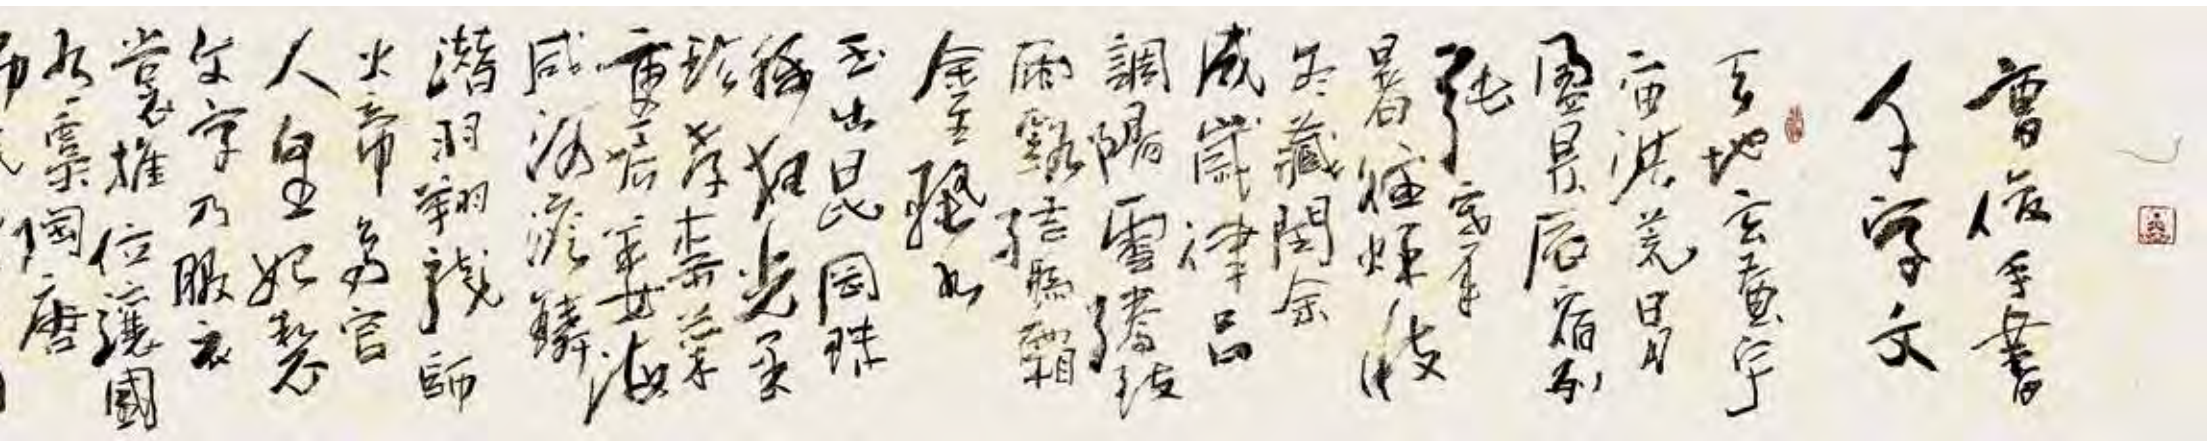 曹俊手書
千字文
天地玄黃宇
宙洪荒日月
盈昃辰宿列
張寒來
暑往秋收
冬藏閏余
成歲律呂
調陽雲騰致
雨露結為霜
金生麗水
玉出昆岡珠
稱夜光果
珍李柰菜
重芥薑海
咸河淡鱗
潛羽翔龍師
火帝鳥官
人皇始製
文字乃服衣
裳推位讓國
有虞陶唐